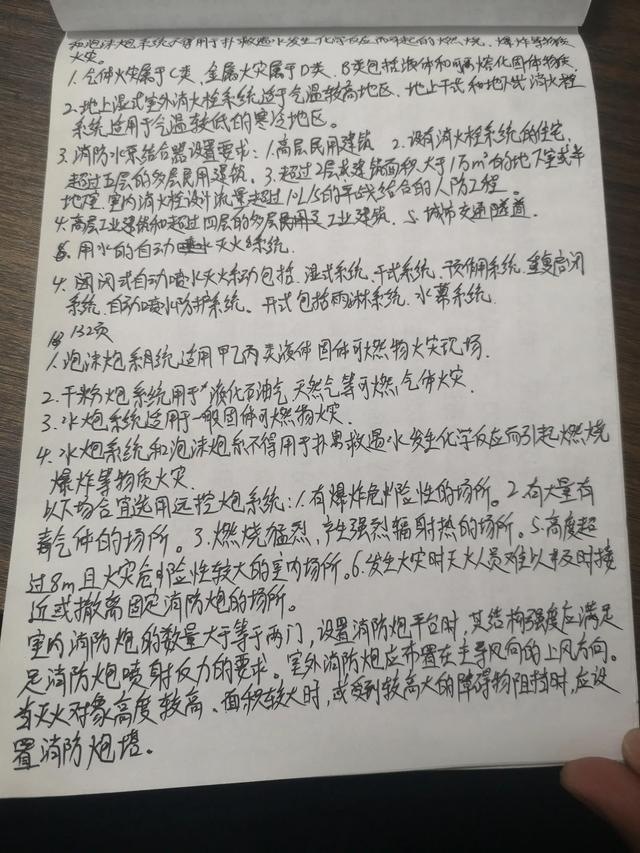 和泡沫炮系统不得用于扑救遇水发生化学反应而引起的燃烧、爆炸等物质
火灾。
1. 气体火灾属于C类、金属火灾属于D类、B类包括液体和可熔化固体物质
2. 地上湿式室外消火栓系统适于气温较高地区、地上干式和地下式消火栓
系统适用于气温较低的寒冷地区。
3. 消防水泵结合器设置要求：1.高层民用建筑 2.设有消火栓系统的住宅，
超过五层的多层民用建筑、3.超过2层或建筑面积大于1万m²的地下室或半
地下室、室内消火栓设计流量超过10L/s的平战结合的人防工程。
4. 高层工业建筑和超过四层的多层工业建筑、5.城市交通隧道.
6. 用水的自动灭火系统.
4. 闭式自动喷水灭火系统包括、湿式系统、干式系统、预作用系统、重复启闭
系统、自动喷水防护系统、开式包括雨淋系统、水幕系统.
132页
1. 泡沫炮系统适用甲乙丙类液体固体可燃物火灾现场.
2. 干粉炮系统用于液化石油气、天然气等可燃气体火灾.
3. 水炮系统适用于一般固体可燃物火灾.
4. 水炮系统和泡沫炮系不得用于扑救遇水发生化学反应而引起燃烧
爆炸等物质火灾.
以下场合宜选用远控炮系统：1.有爆炸危险性的场所。2.有大量有
毒气体的场所。3.燃烧猛烈，产生强烈辐射热的场所。5.高度超
过8m且火灾危险性较大的室内场所。6.发生火灾时灭火人员难以及时接
近或撤离固定消防炮的场所。
室内消防炮的数量大于等于两门，设置消防炮平台时，其结构强度应满足
足消防炮喷射反力的要求。室外消防炮应布置在主导风向的上风方向。
当灭火对象高度较高、面积较大时，或受到较高大的障碍物阻挡时，应设
置消防炮塔。